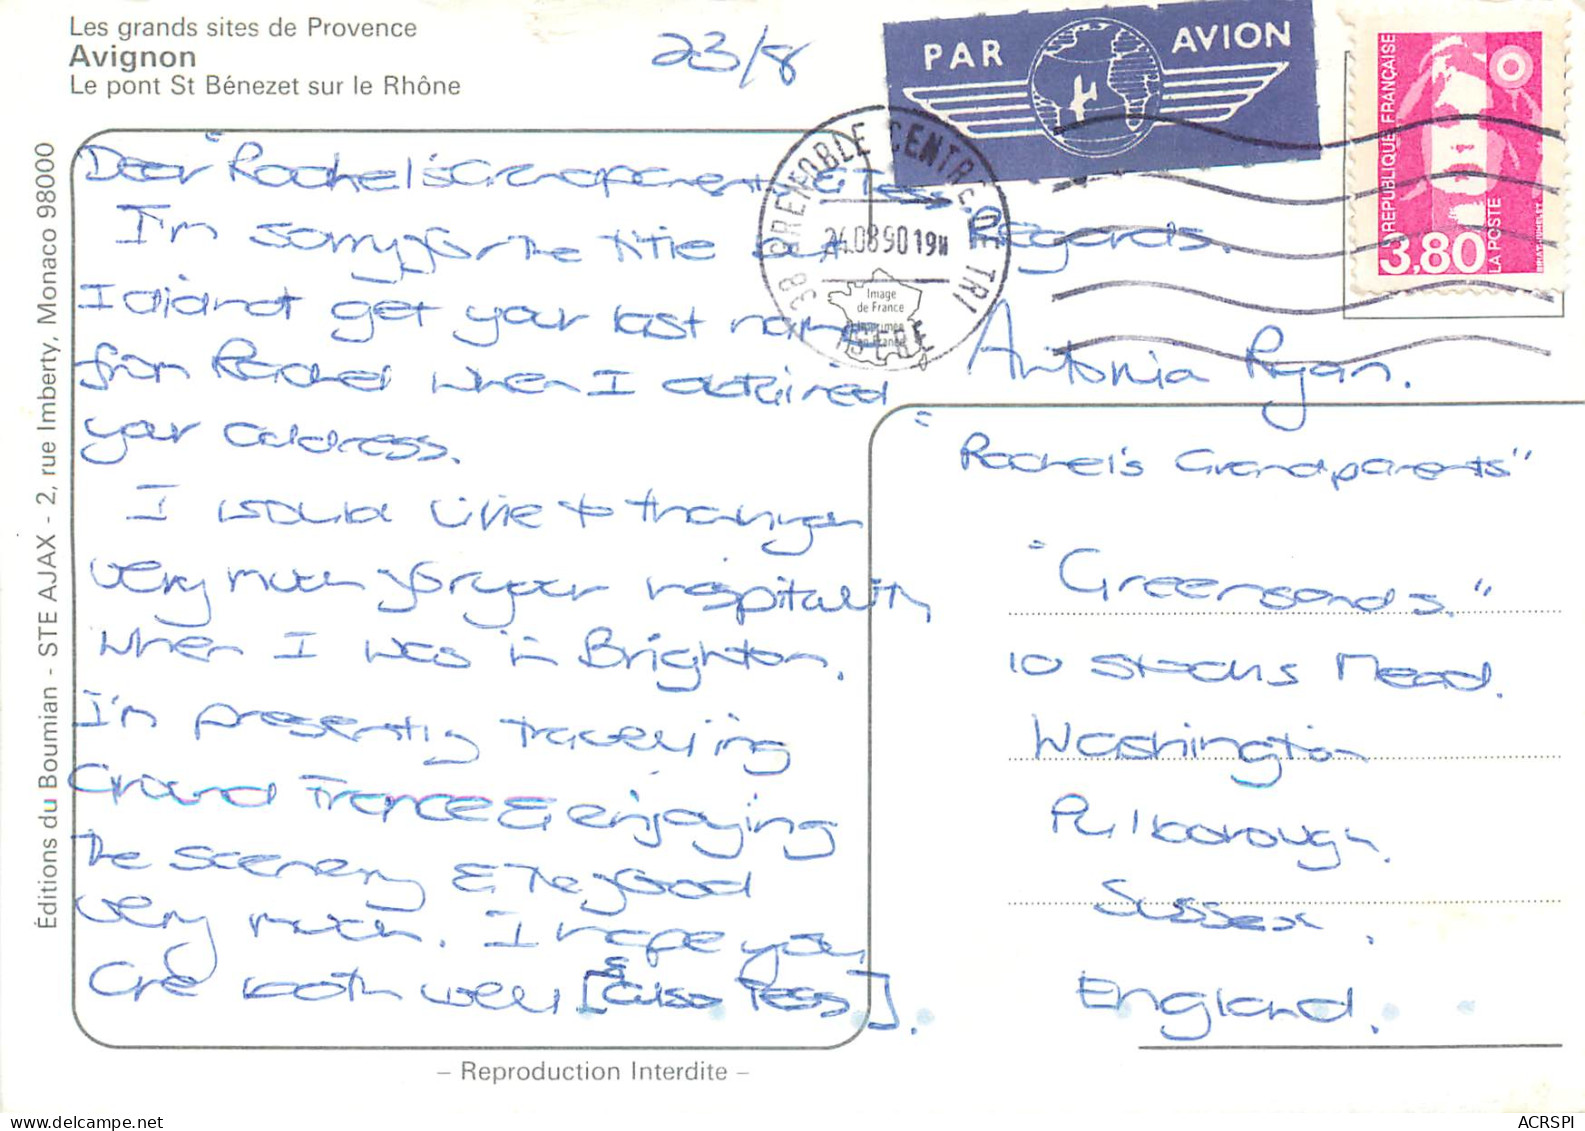 Les grands sites de Provence
Avignon
Le pont St Bénezet sur le Rhône
23/8
PAR AVION
RÉPUBLIQUE FRANÇAISE
3,80
LA POSTE
38 GRENOBLE CENTRE DE TRI
24.08.90 19H
ISERE
Image
de France
Imprimée
en France
Éditions du Boumian - STE AJAX - 2, rue Imberty, Monaco 98000
Dear "Rachel's Grandparents" & Tess
I'm sorry for the title but
I did not get your last name
from Rachel when I obtained
your address.
I would like to thankyou
very much for your hospitality
when I was in Brighton.
I'm presently travelling
around France & enjoying
the scenery & the food
very much. I hope you
are both well [& also Tess].
Regards.
Antonia Ryan.
"Rachel's Grandparents"
"Greensands."
10 Stocks Mead.
Washington
Pulborough.
Sussex.
England.
– Reproduction Interdite –
ACRSPI